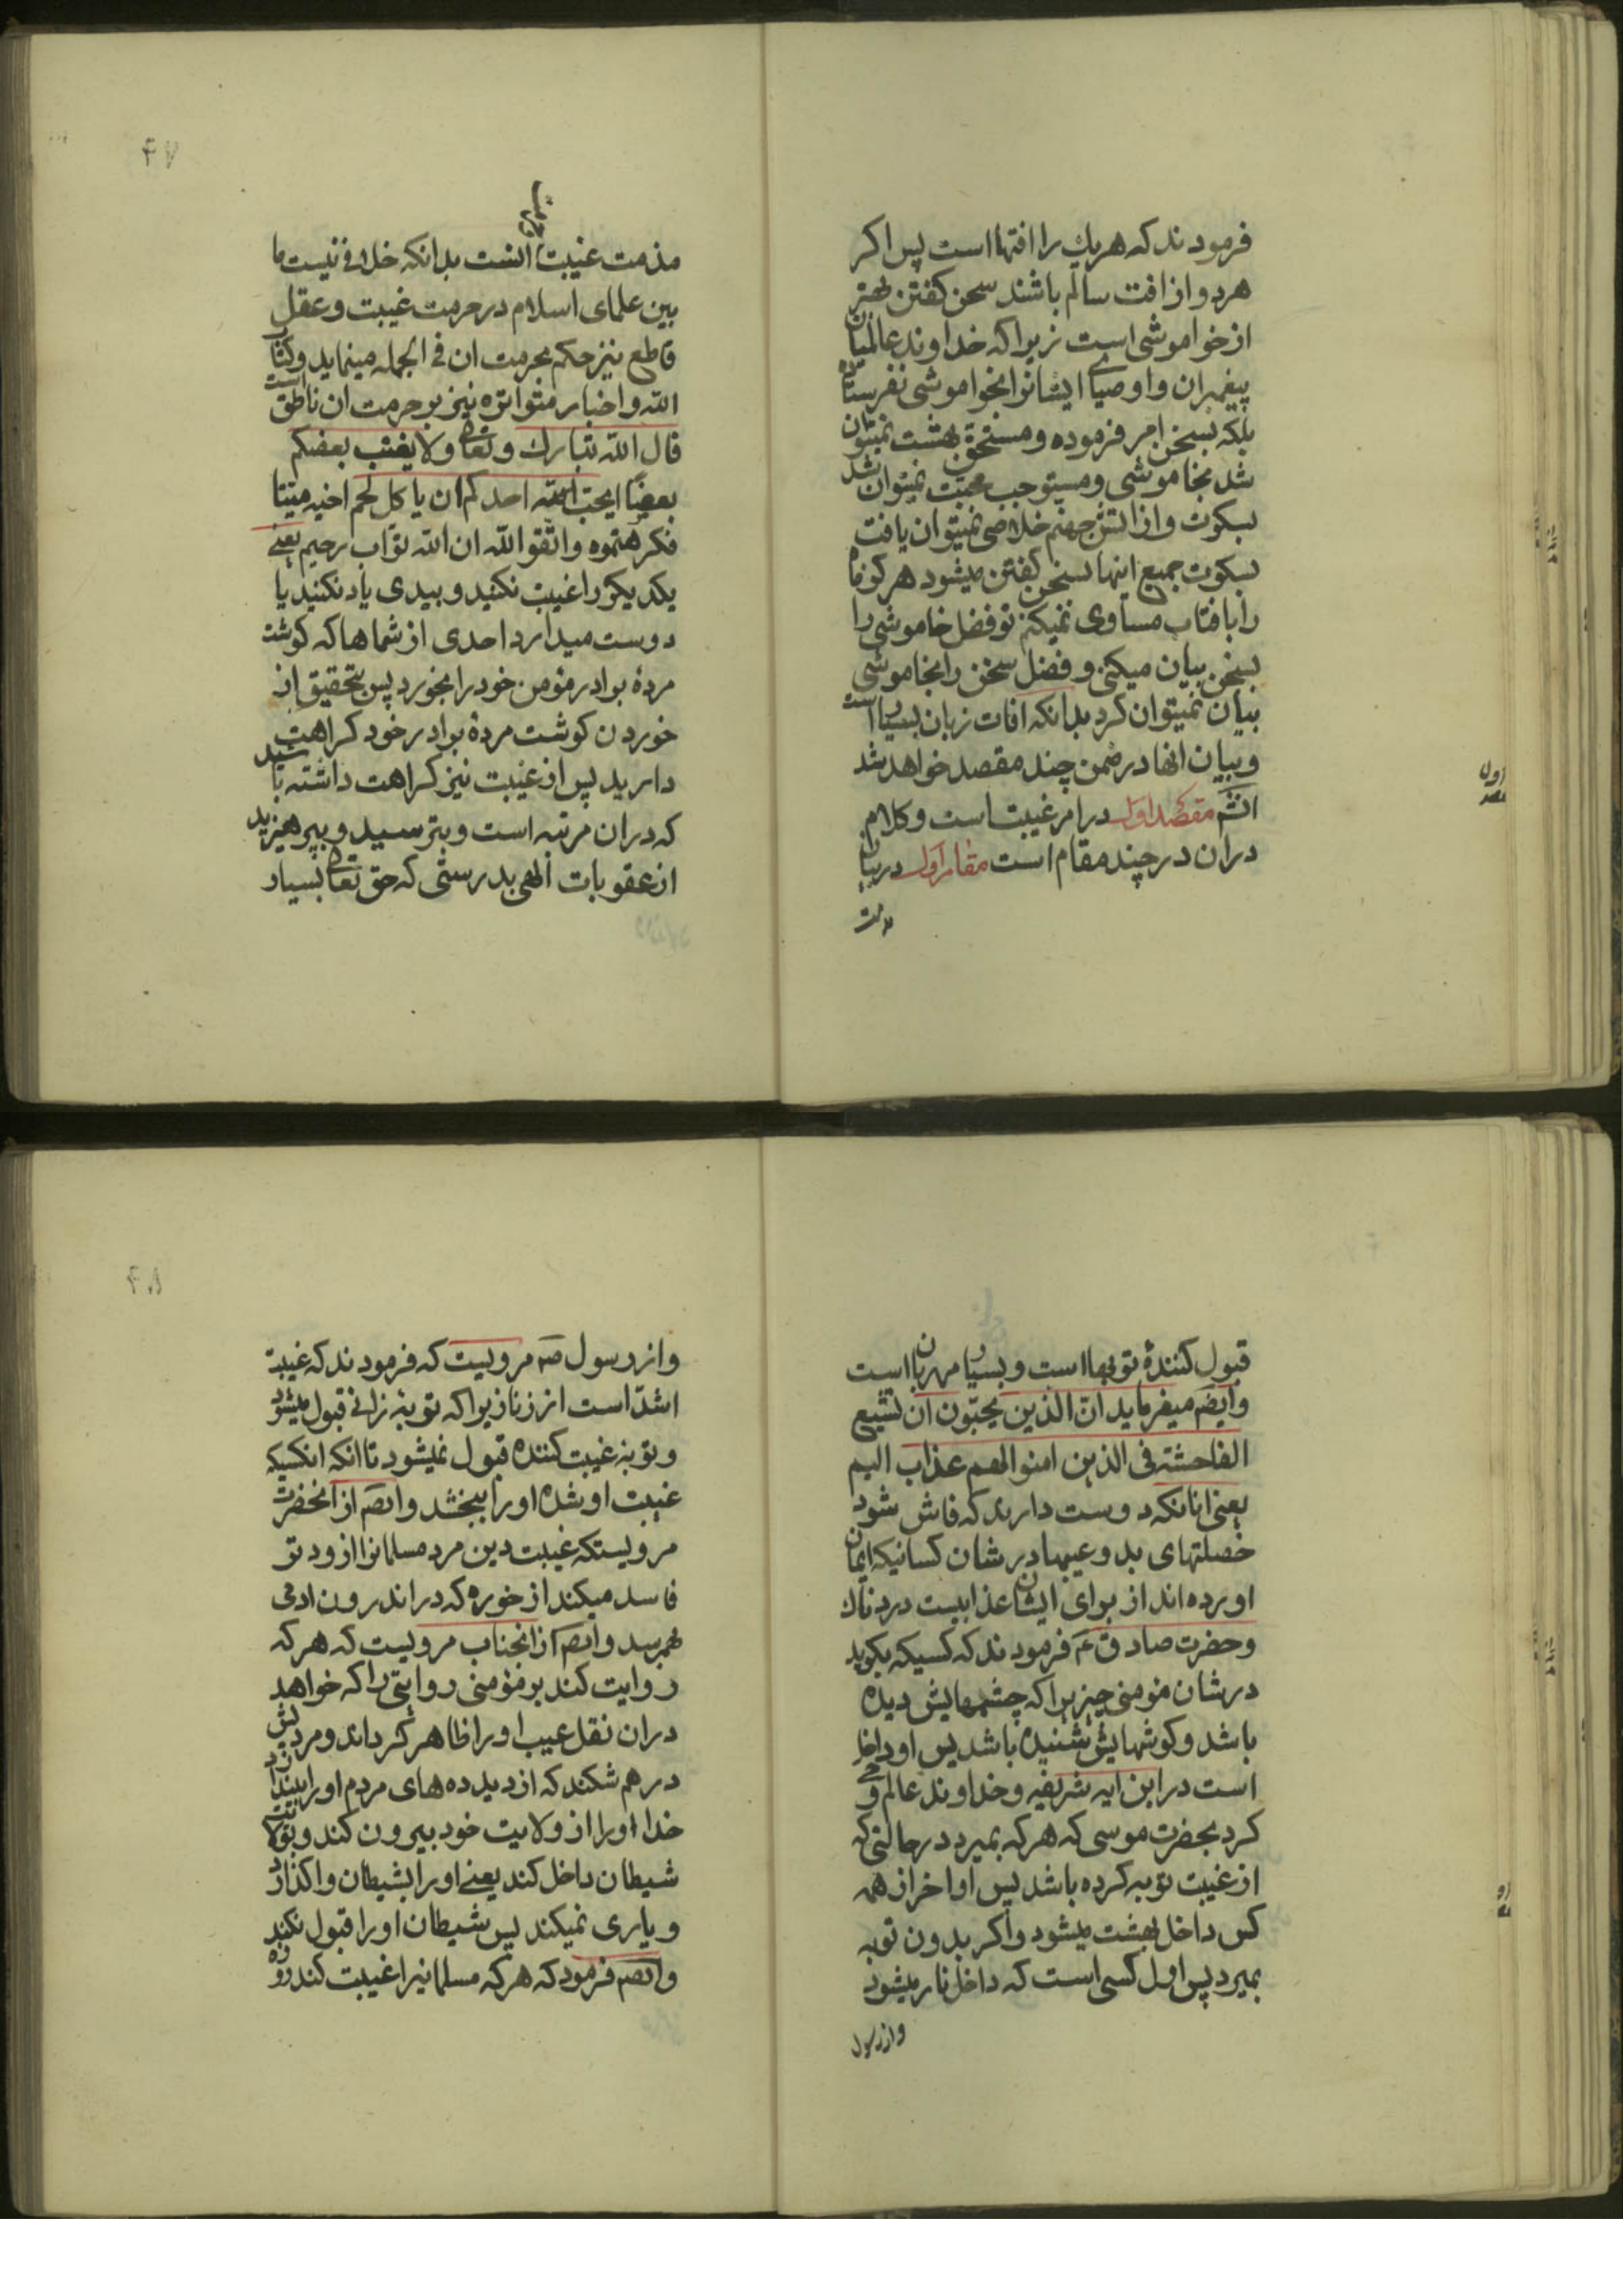 فرمودند که هر یک را افتها است پس اکر
هر دو از افت سالم باشند سخن کفتن بهتر
از خواموشی است زیرا که خداوند عالمیان
پیغمبران و اوصیای ایشانرا بخواموشی نفرستاده
بلکه بسخن امر فرموده و مستحق بهشت نمیتوان
شد بخاموشی و مستوجب محبت نمیتوان شد
بسکوت و از اتش جهنم خلاصی نمیتوان یافت
بسکوت جمیع اینها بسخن کفتن میشود هرکز ماه
را بافتاب مساوی نمیکنم تو فضل خاموشی را
بسخن بیان میکنی و فضل سخن را بخاموشی
بیان نمیتوان کرد بدانکه افات زبان بسیار است
و بیان انها در ضمن چند مقصد خواهد شد
انشم مقصد اول در امر غیبت است و کلام
دران در چند مقام است مقام اول در بیان
مذمت
۴۷
مذمت غیبت انست بدانکه خلافی نیست ما
بین علمای اسلام در حرمت غیبت و عقل
قاطع نیز حکم بحرمت ان فی الجمله مینماید و کتاب
الله و اخبار متواتره نیز بر حرمت ان ناطق است
قال الله تبارک و تعالی ولا یغتب بعضکم
بعضا ایحب احدکم ان یاکل لحم اخیه میتا
فکرهتموه واتقوا الله ان الله تواب رحیم یعنی
یکدیکر را غیبت نکنید و ببدی یاد نکنید یا
دوست میدارد احدی از شماها که کوشت
مردهٔ برادر مؤمن خود را بخورد پس بتحقیق از
خوردن کوشت مردهٔ برادر خود کراهت
دارید پس از غیبت نیز کراهت داشته باشید
که دران مرتبه است و بترسید و بپرهیزید
از عقوبات الهی بدرستی که حق تعالی بسیار
قبول کنندهٔ توبها است و بسیار مهربان است
وایضم میفرماید ان الذین یحبون ان تشیع
الفاحشة فی الذین امنوا لهم عذاب الیم
یعنی انانکه دوست دارند که فاش شود
خصلتهای بد و عیبها در شان کسانیکه ایمان
اورده اند از برای ایشان عذابیست دردناک
و حضرت صادق ع فرمودند که کسیکه بکوید
در شان مومنی چیزیرا که چشمهایش دیده
باشد و کوشهایش شنیده باشد پس او داخل
است در این ایه شریفه و خداوند عالم وحی
کرد بحضرت موسی که هر که بمیرد در حالتی که
از غیبت توبه کرده باشد پس او اخر از همه
کس داخل بهشت میشود و اکر بدون توبه
بمیرد پس اول کسی است که داخل نار میشود
و از رسول
۴۸
و از رسول ص مرویست که فرمودند که غیبت
اشد است از زنا زیرا که توبهٔ زانی قبول میشود
و توبهٔ غیبت کننده قبول نمیشود تا انکه انکسیکه
غیبت او شده او را ببخشد وایضم از انحضرت
مرویستکه غیبت دین مرد مسلمانرا زودتر
فاسد میکند از خوره که در اندرون ادمی
بهمرسد وایضم از انجناب مرویست که هر که
روایت کند بر مؤمنی روایتی را که خواهد
دران نقل عیب او را ظاهر کرداند و مردیش
در هم شکند که از دیده های مردم او را بیندازد
خدا او را از ولایت خود بیرون کند و بولایت
شیطان داخل کند یعنی او را بشیطان واکذارد
و یاری نمیکند پس شیطان او را قبول نکند
وایضم فرمود که هر که مسلمانیرا غیبت کند روزه